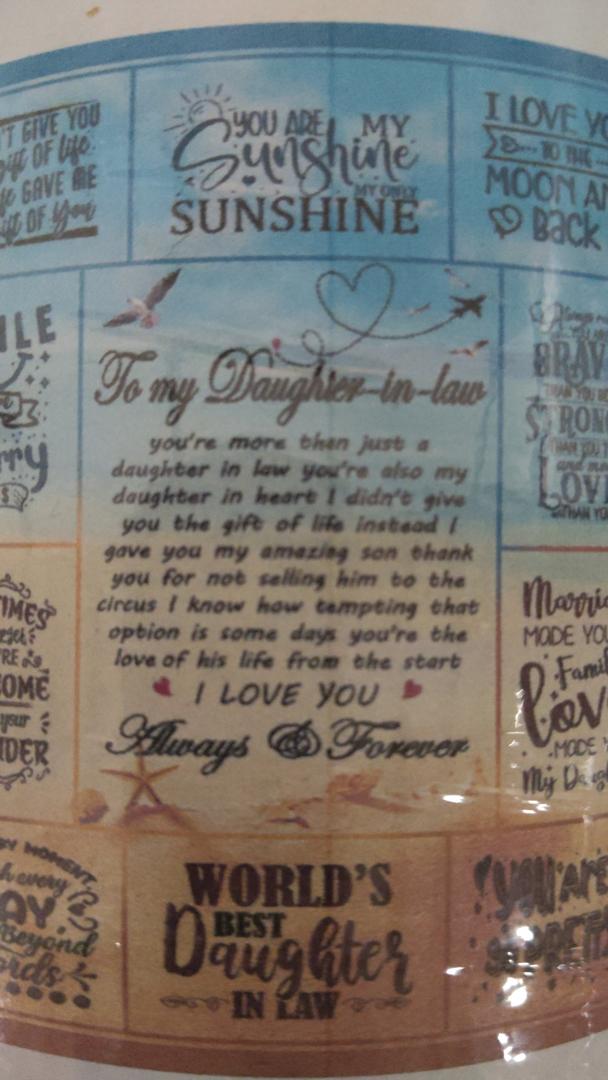 'T GIVE YOU
gift OF life
fe GAVE ME
gift OF You
YOU ARE MY
Sunshine
MY ONLY
SUNSHINE
I LOVE YO
TO THE
MOON AN
Back
ILE
rry
To my Daughter-in-law
you're more then just a
daughter in law you're also my
daughter in heart I didn't give
you the gift of life instead I
gave you my amazing son thank
you for not selling him to the
circus I know how tempting that
option is some days you're the
love of his life from the start
I LOVE YOU
Always & Forever
BRAV
THAN YOU
STRON
THAN YOU
and
LOV
THAN YOU
TIMES
RE
OME
your
NDER
Marri
MADE YO
Famil
Lov
MADE
My Daug
RY MOMENT
h every
AY
Beyond
ords
WORLD'S
BEST
Daughter
IN LAW
YOU ARE
SO PRETT